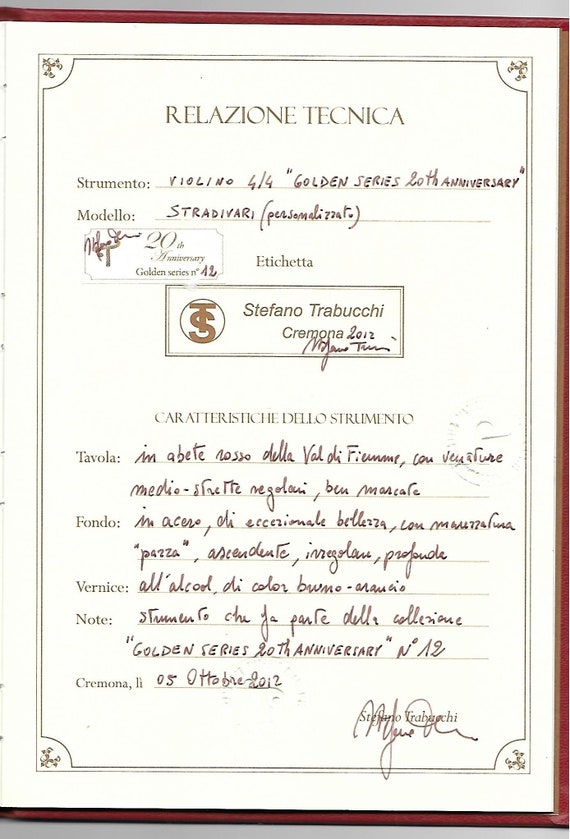 RELAZIONE TECNICA
Strumento: VIOLINO 4/4 "GOLDEN SERIES 20th ANNIVERSARY"
Modello: STRADIVARI (personalizzato)
20th
Anniversary
Golden series n° 12
Etichetta
TS
Stefano Trabucchi
Cremona 2012
CARATTERISTICHE DELLO STRUMENTO
Tavola: in abete rosso della Val di Fiemme, con venature
medio-strette regolari, ben marcate
Fondo: in acero, di eccezionale bellezza, con marezzatura
"pazza", ascendente, irregolare, profonda
Vernice: all'alcool, di color bruno-arancio
Note: strumento che fa parte della collezione
"GOLDEN SERIES 20th ANNIVERSARY" N° 12
Cremona, lì 05 Ottobre 2012
Stefano Trabucchi